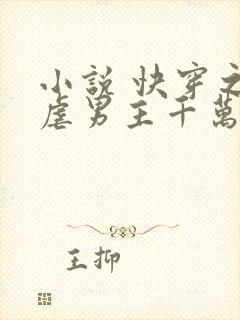 小說 快穿之
虐男主千萬
王抑